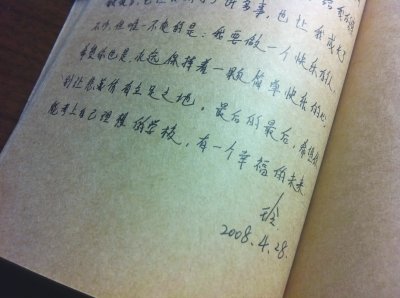 许多事，也让我成长
不少，但唯一不变的是：我要做一个快乐的人，
希望你也是永远保持着一颗简单快乐的心，
别让悲哀有立足之地，最后的最后，希望你
能考上自己理想的学校，有一个幸福的未来
玲
2008.4.28.